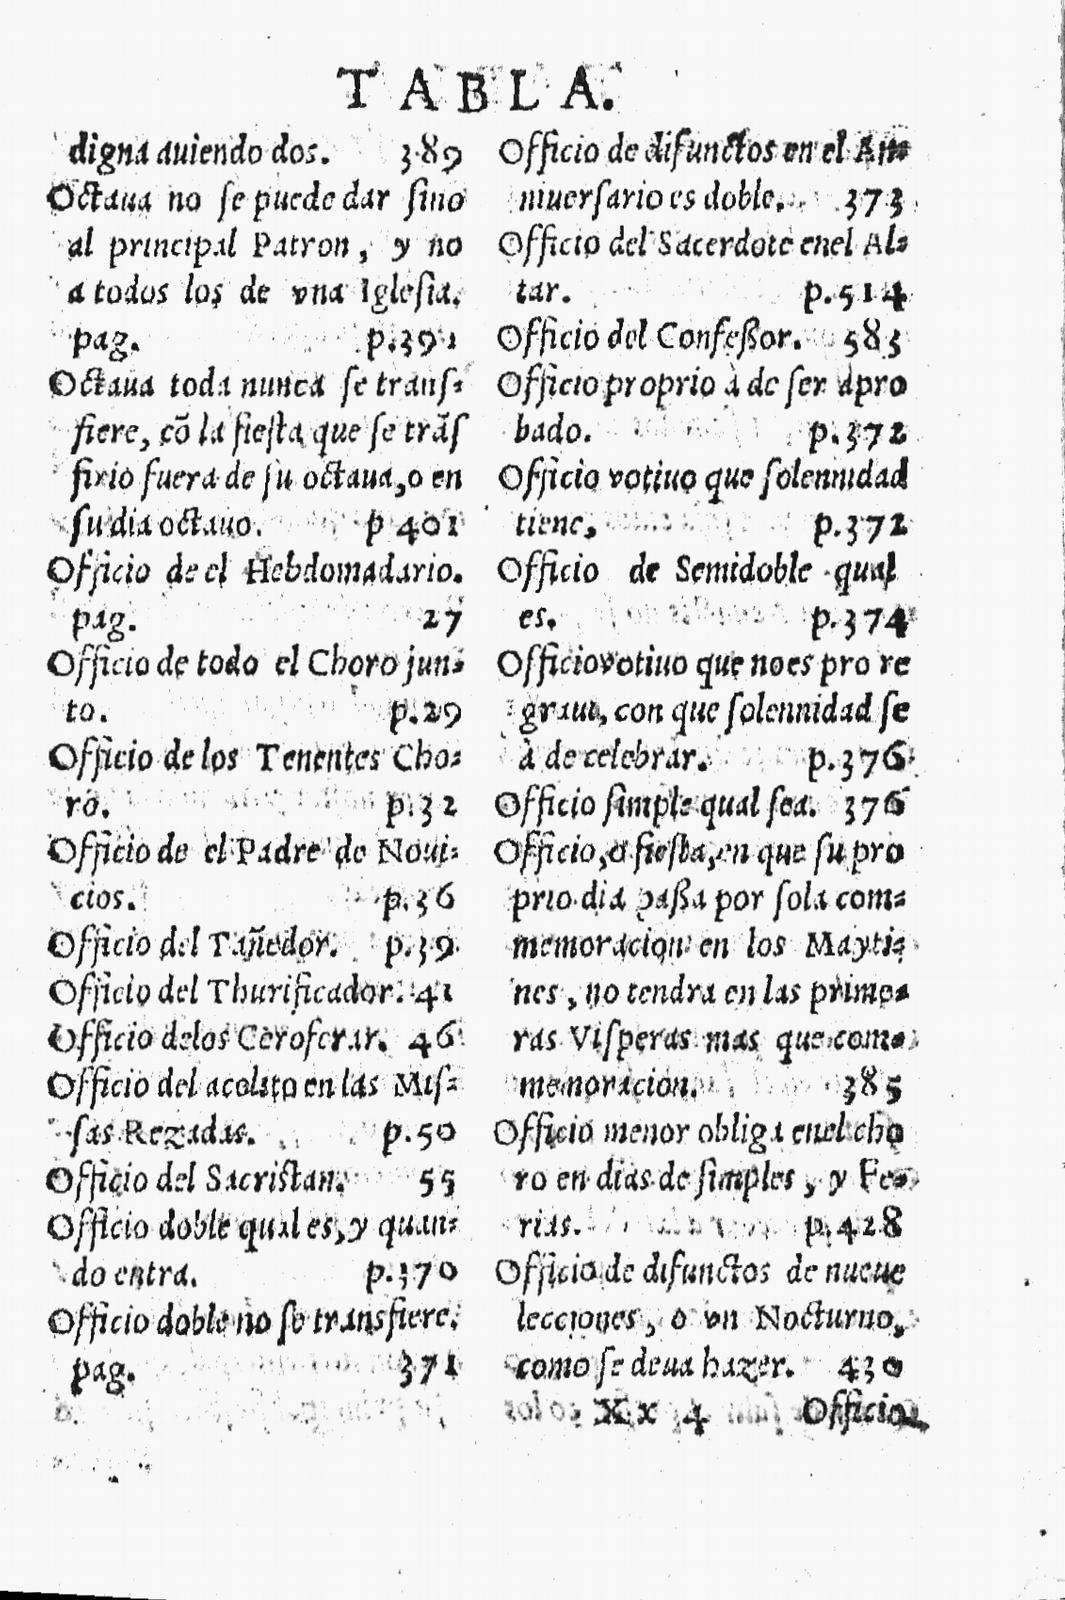 TABLA.
digna auiendo dos. 389
Octaua no ſe puede dar ſino
al principal Patron, y no
a todos los de vna Igleſia.
pag. p.391
Octaua toda nunca ſe tranſ-
fiere, cõ la fieſta que ſe trãſ
firio fuera de ſu octaua, o en
ſu dia octauo. p 401
Officio de el Hebdomadario.
pag. 27
Officio de todo el Choro jun-
to. p.29
Officio de los Tenentes Cho-
ro. p.32
Officio de el Padre de Noui-
cios. p.36
Officio del Tañedor. p.39
Officio del Thurificador. 41
Officio delos Ceroferar. 46
Officio del acolito en las Miſ-
ſas Rezadas. p.50
Officio del Sacriſtan. 55
Officio doble qual es, y quan-
do entra. p.370
Officio doble no ſe transfiere.
pag. 371
Officio de difunctos en el An-
niuerſario es doble. 373
Officio del Sacerdote enel Al-
tar. p.514
Officio del Confeßor. 583
Officio proprio à de ſer apro
bado. p.372
Officio votiuo que ſolennidad
tiene, p.372
Officio de Semidoble qual
es. p.374
Officio votiuo que no es pro re
graui, con que ſolennidad ſe
à de celebrar. p.376
Officio ſimple qual ſea. 376
Officio, o fieſta, en que ſu pro
prio dia paßa por ſola com-
memoracion en los Mayti-
nes, no tendra en las prime-
ras Viſperas mas que com-
memoracion. 385
Officio menor obliga enel cho
ro en dias de ſimples, y Fe-
rias. p.428
Officio de difunctos de nueue
lecciones, o vn Nocturno,
como ſe deua hazer. 430
Xx 4 Officio